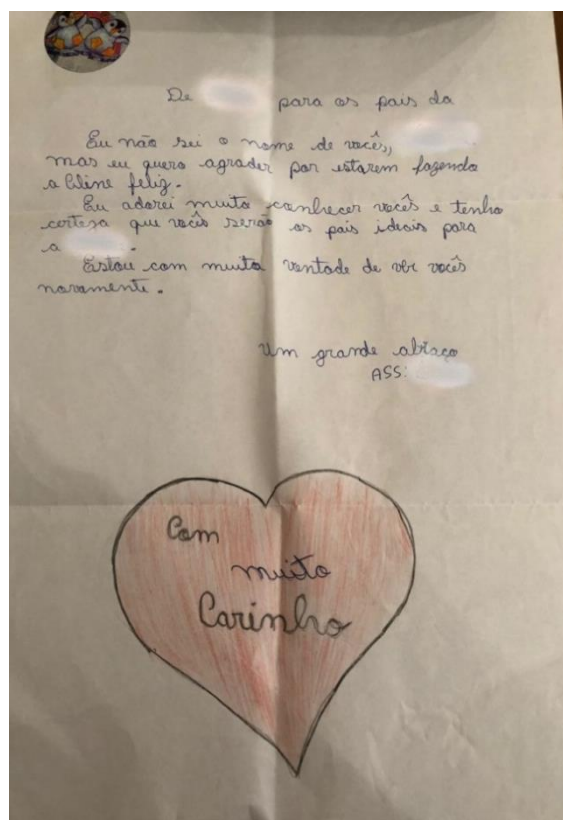 De para os pais da
Eu não sei o nome de vocês,
mas eu quero agrader por estarem fazendo
a Cline feliz.
Eu adorei muito conhecer vocês e tenho
certeza que vocês serão os pais ideais para
a .
Estou com muita vontade de ver vocês
novamente.
Um grande abraço
ASS:
Com
muito
Carinho